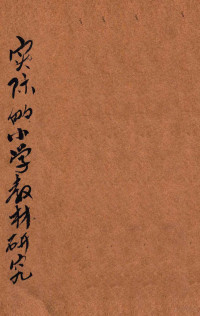 实际的小学教材研究